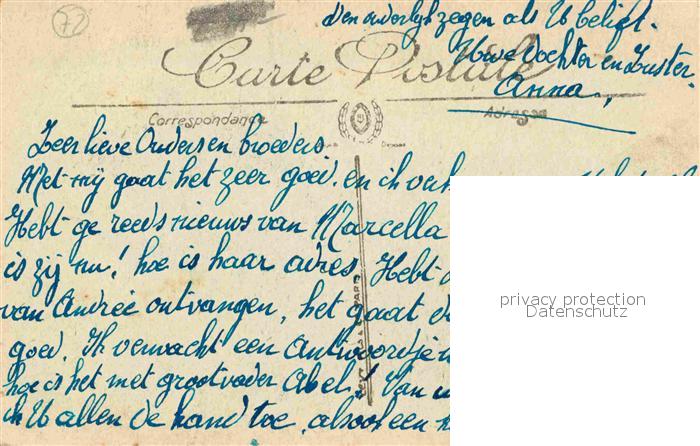 72
den ouderlijk zegen als U belieft.
Uwe Dochter en Zuster.
Anna.
Carte Postale
Correspondance
Adresse
Zeer lieve Ouders en broeders
Met mij gaat het zeer goed. en ik
Hebt ge reeds nieuws van Marcella
is zij nu! hoe is haar adres. Hebt
van Andrée ontvangen, het gaat
goed. Ik verwacht een Antwoordje
hoe is het met grootvader Abel! Van
ik U allen de hand toe, alsook een
privacy protection
Datenschutz